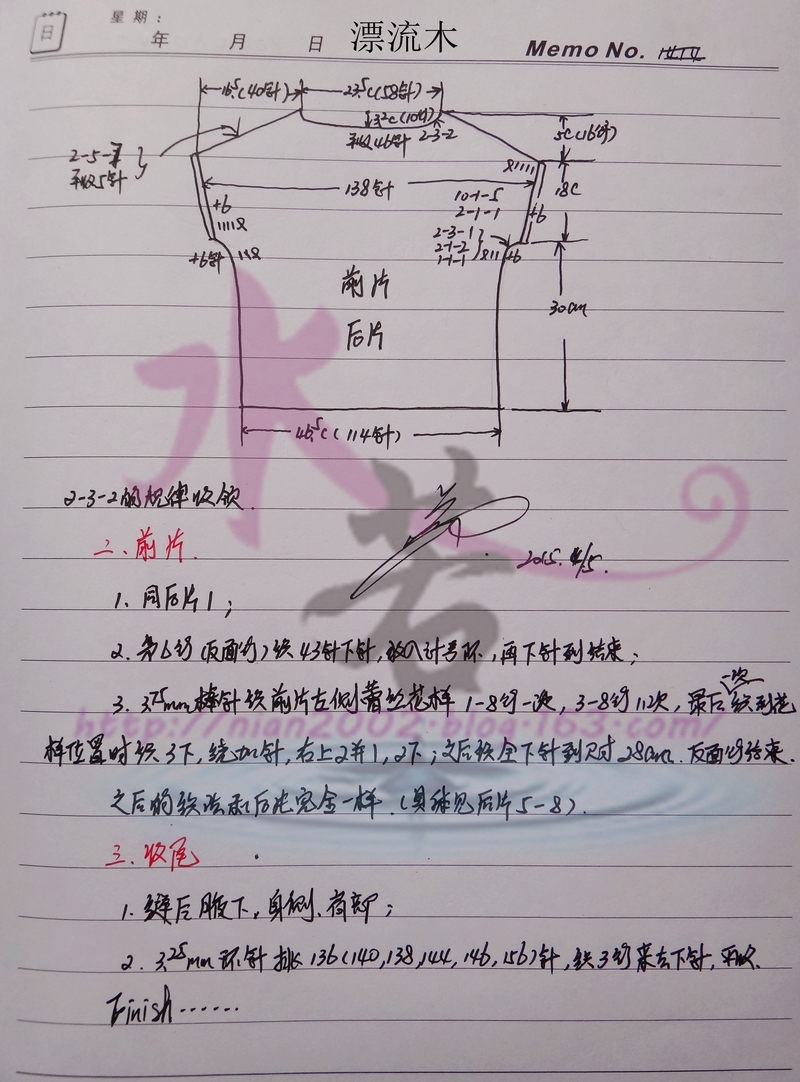 日
星期：
年 月 日 漂流木 Memo No.
16.5c(40针) 23.5c(58针)
3.2c(10行) 5c(16行)
平收46针 2-3-2
2-5-7
平收5针
138针 18c
10-1-5
2-1-1
+6 +6
2-3-1
2-1-2
1-1-1
+6针 +6
前片
后片
30cm
46.5c(114针)
2-3-2的规律收领.
二、前片.
2015. 4/5.
1、同后片1；
2、第6行(反面行)织43针下针,放入计号环,再下针到结束；
一次
3、3.75mm棒针织前片左侧蕾丝花样1-8行一次,3-8行11次,最后织到花
样位置时织3下,绕加针,右上2并1,2下；之后织全下针到尺寸28cm.反面行结束.
之后的织法和后片完全一样.(具体见后片5-8).
三、收尾
1、缝合腋下,身侧、肩部；
2、3.25mm环针挑136(140,138,144,146,156)针,织3行来去下针,平收.
Finish······
水
若
http://nian2002.blog.163.com/